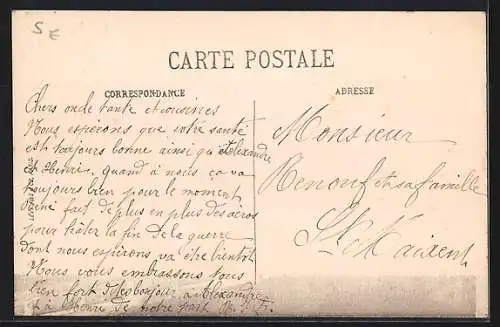 5 €
CARTE POSTALE
CORRESPONDANCE
ADRESSE
Chers oncle tante et cousines
Nous espérons que votre santé
est toujours bonne ainsi qu'Alexandre
et Henri, quand à nous ça va
toujours bien pour le moment
René fait de plus en plus des aéros
pour hâter la fin de la guerre
dont nous espérons va être bientôt
Nous vous embrassons tous
bien fort dites bonjour à Alexandre
et à Henri de notre part
Monsieur
Renouf et sa famille
St Maixent